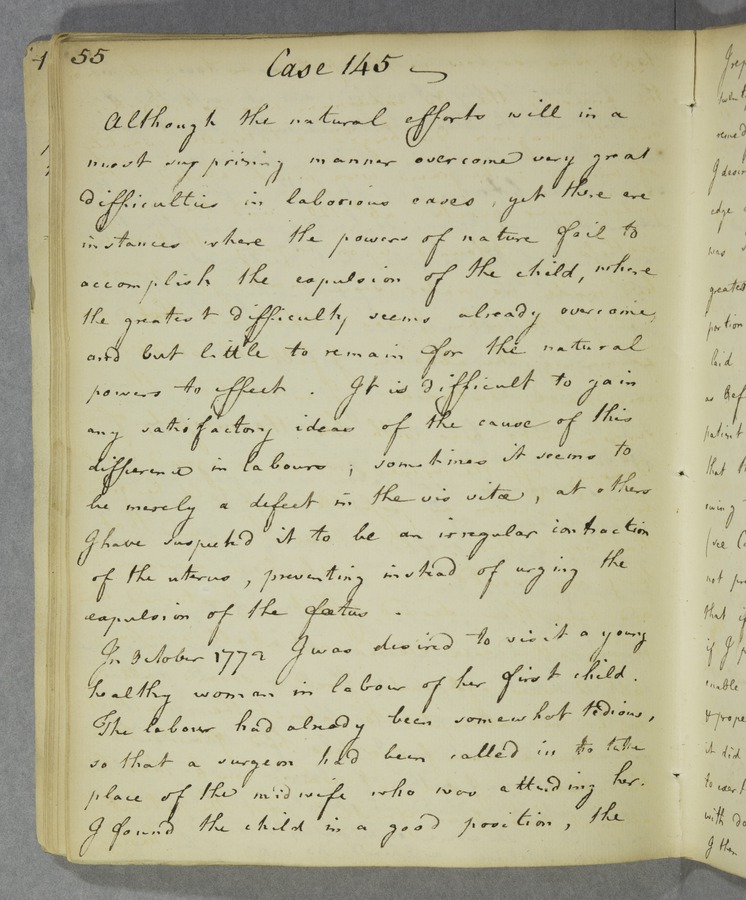 55
Case 145
Although the natural efforts will in a
most surprising manner overcome very great
difficulties in laborious cases, yet there are
instances where the powers of nature fail to
accomplish the expulsion of the child, where
the greatest difficulty seems already overcome,
and but little to remain for the natural
powers to effect. It is difficult to gain
any satisfactory ideas of the cause of this
difference in labours; sometimes it seems to
be merely a defect in the vis vitæ, at others
I have suspected it to be an irregular contraction
of the uterus, preventing instead of urging the
expulsion of the fœtus.
In October 1772 I was desired to visit a young
healthy woman in labour of her first child.
The labour had already been somewhat tedious,
so that a surgeon had been called in to take
place of the midwife who was attending her.
I found the child in a good position, the
greatest
portion
laid
patient
that
swing
(see
not
that if
if I
enable
it did
to exert
with
I then